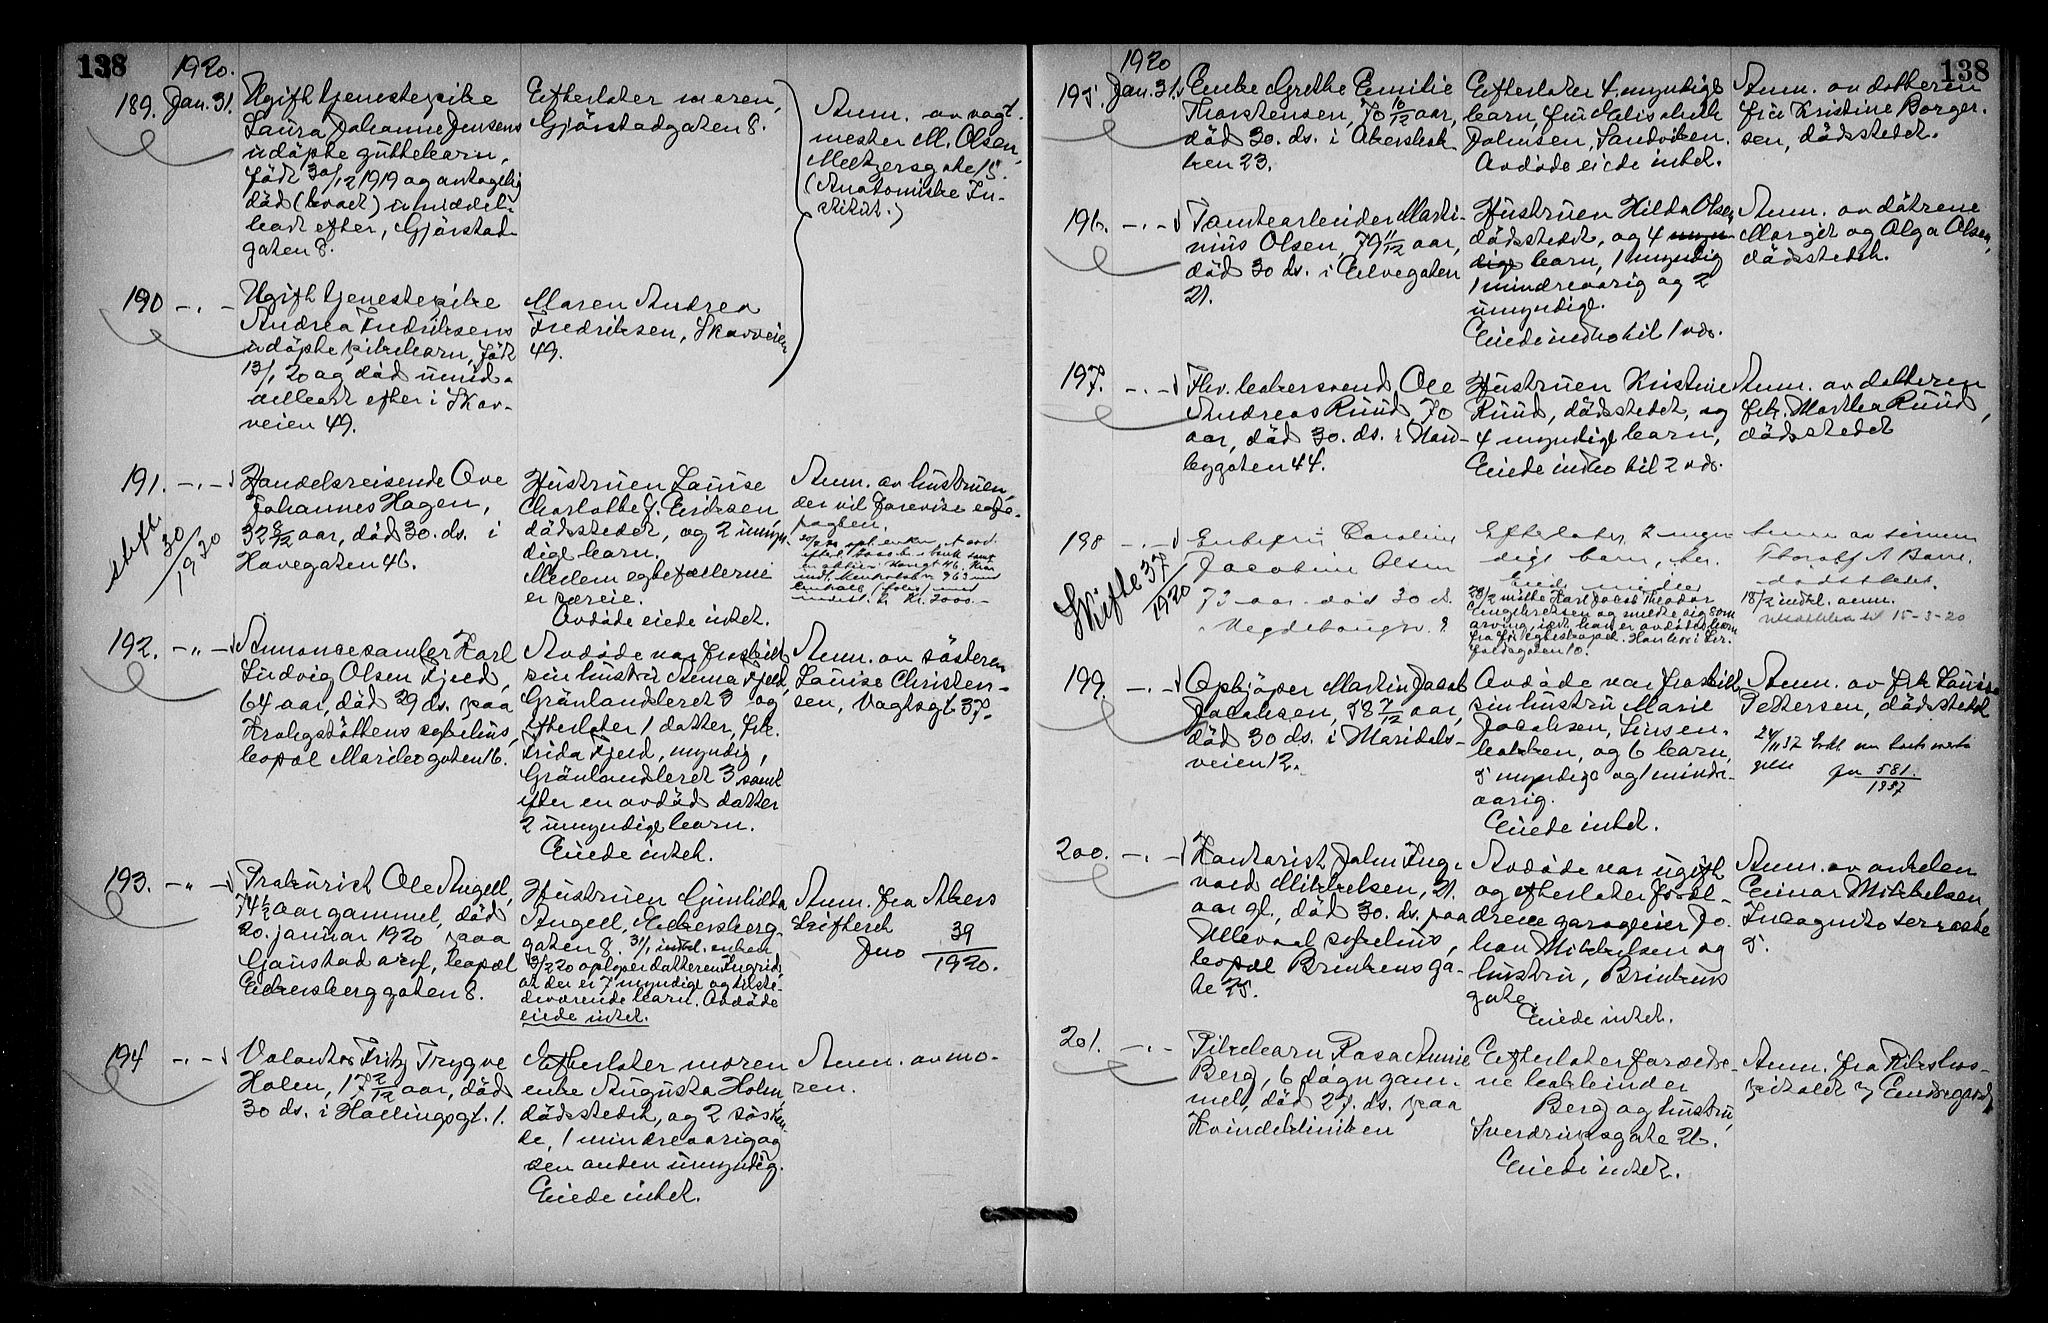 138
1920.
189. Jan. 31.
Ugift tjenestepike
Laura Johanne Jensens
udöpte guttebarn,
født 30/12 1919 og antagelig
död (kvalt) umiddel-
bart efter, Gjörstad-
gaten 8.
Efterlater moren,
Gjörstadgaten 8.
Anm. av vagt-
mester M. Olsen,
Meltzersgate 15.
(Anatomiske In-
stitut.)
190 -.-
Ugift tjenestepike
Andrea Fredriksens
udöpte pikebarn, født
13/1 20 og död umid-
delbart efter i Skov-
veien 49.
Moren Andrea
Fredriksen, Skovveien
49.
191. -.-
Skifte 30/1920
Handelsreisende Ove
Johannes Hagen,
32 8/12 aar, död 30. ds. i
Havegaten 46.
Hustruen Louise
Charlotte f. Eriksen,
dödsstedet, og 2 umyn-
dige barn.
Mellem egtefællerne
er særeie.
Avdöde eiede intet.
Anm. av hustruen,
der vil forevise egte-
pagten.
192. -"-
Annoncesamler Karl
Ludvig Olsen Fjeld,
64 aar, död 29 ds. paa
Krohgstöttens sykehus,
bopæl Maribogaten 16.
Avdöde var fraskilt
sin hustru Anna Fjeld,
Grönlandsleret 3 og
efterlater 1 datter, frk.
Frida Fjeld, myndig,
Grönlandsleret 3 samt
efter en avdöd datter
2 umyndige barn.
Eiede intet.
Anm. av søsteren
Louise Christen-
sen, Vagtsgt. 37.
193. -"-
Prokurist Ole Angell,
74 1/2 aar gammel, död
20. januar 1920 paa
Gaustad asyl, bopæl
Eckersberggaten 8.
Hustruen Gunhilda
Angell, Eckersberg-
gaten 8. 31/1 indk. enken
3/2 20 oplyser datteren Ingrid,
at der er 7 myndige og tilste-
deværende barn. Avdöde
eiede intet.
Anm. fra Akers
Skifteret
Jno 39/1920.
194 -.-
Volontør Fritz Trygve
Holm, 17 2/12 aar, död
30 ds. i Hallingsgt. 1.
Efterlater moren
enke Augusta Holm,
dödsstedet, og 2 søsken-
de, 1 mindreaarig og
den anden umyndig.
Eiede intet.
Anm. av mo-
ren.
138
1920
195. Jan. 31.
Enke Grethe Emilie
Thorstensen, 70 10/12 aar,
död 30. ds. i Akersbak-
ken 23.
Efterlater 4 myndige
barn, fru Elisabeth
Johnsen, Sandviken.
Avdöde eiede intet.
Anm. av datteren
fru Kristine Borger-
sen, dödsstedet.
196. -.-
Tomtearbeider Marti-
nius Olsen, 79 11/12 aar,
död 30 ds. i Elvegaten
21.
Hustruen Hilda Olsen,
dödsstedet, og 4 myn-
dige barn, 1 myndig
1 mindreaarig og 2
umyndige.
Eiede indbo til 1 vds.
Anm. av dötrene
Margit og Olga Olsen,
dödsstedet.
197. -.-
Fhv. bakersvend Ole
Andreas Ruud, 70
aar, död 30. ds. i Nord-
bygaten 44.
Hustruen Kristine
Ruud, dödsstedet, og
4 myndige barn,
Eiede indbo til 2 vds.
Anm. av datteren
frk. Martha Ruud,
dödsstedet
198 -.-
Skifte 37/1920
Enkefru Caroline
Jacobine Olsen
73 aar död 30 ds.
Efterlater 2 myn-
dige barn,
Eiede midler
28/2 møtte Karl Jacob Theodor
Engebretsen og meldte sig som
arving,
Anm av sönnen
dödsstedet.
18/2 indk. anm.
15-3-20
199. -.-
Opkjöper Martin Jacob
Jacobsen, 58 7/12 aar,
död 30 ds. i Maridals-
veien 12.
Avdöde var fraskilt
sin hustru Marie
Jacobsen, Linsen-
bakken, og 6 barn,
5 myndige og 1 mindre-
aarig.
Eiede intet.
Anm. av frk Louise
Pettersen, dödsstedet
jnr 581/1937
200. -.-
Kontorist John Ing-
vald Mikkelsen, 21
aar gl., död 30. ds. paa
Ullevaal sykehus,
bopæl Brinkens ga-
te 25.
Avdöde var ugift
og efterlater foræl-
drene garageeier Jo-
han Mikkelsen og
hustru, Brinkens
gate
Eiede intet.
Anm. av onkelen
Einar Mikkelsen,
Incognito terrasse
5.
201. -.-
Pikebarn Rosa Annie
Berg, 6 døgn gam-
mel, död 27. ds. paa
Kvindeklinikken
Efterlater foræld-
rene bokbinder
Berg og hustru,
Sverdrupsgate 26.
Eiede intet.
Anm. fra Rikshos-
pitalet v/ Endregaard